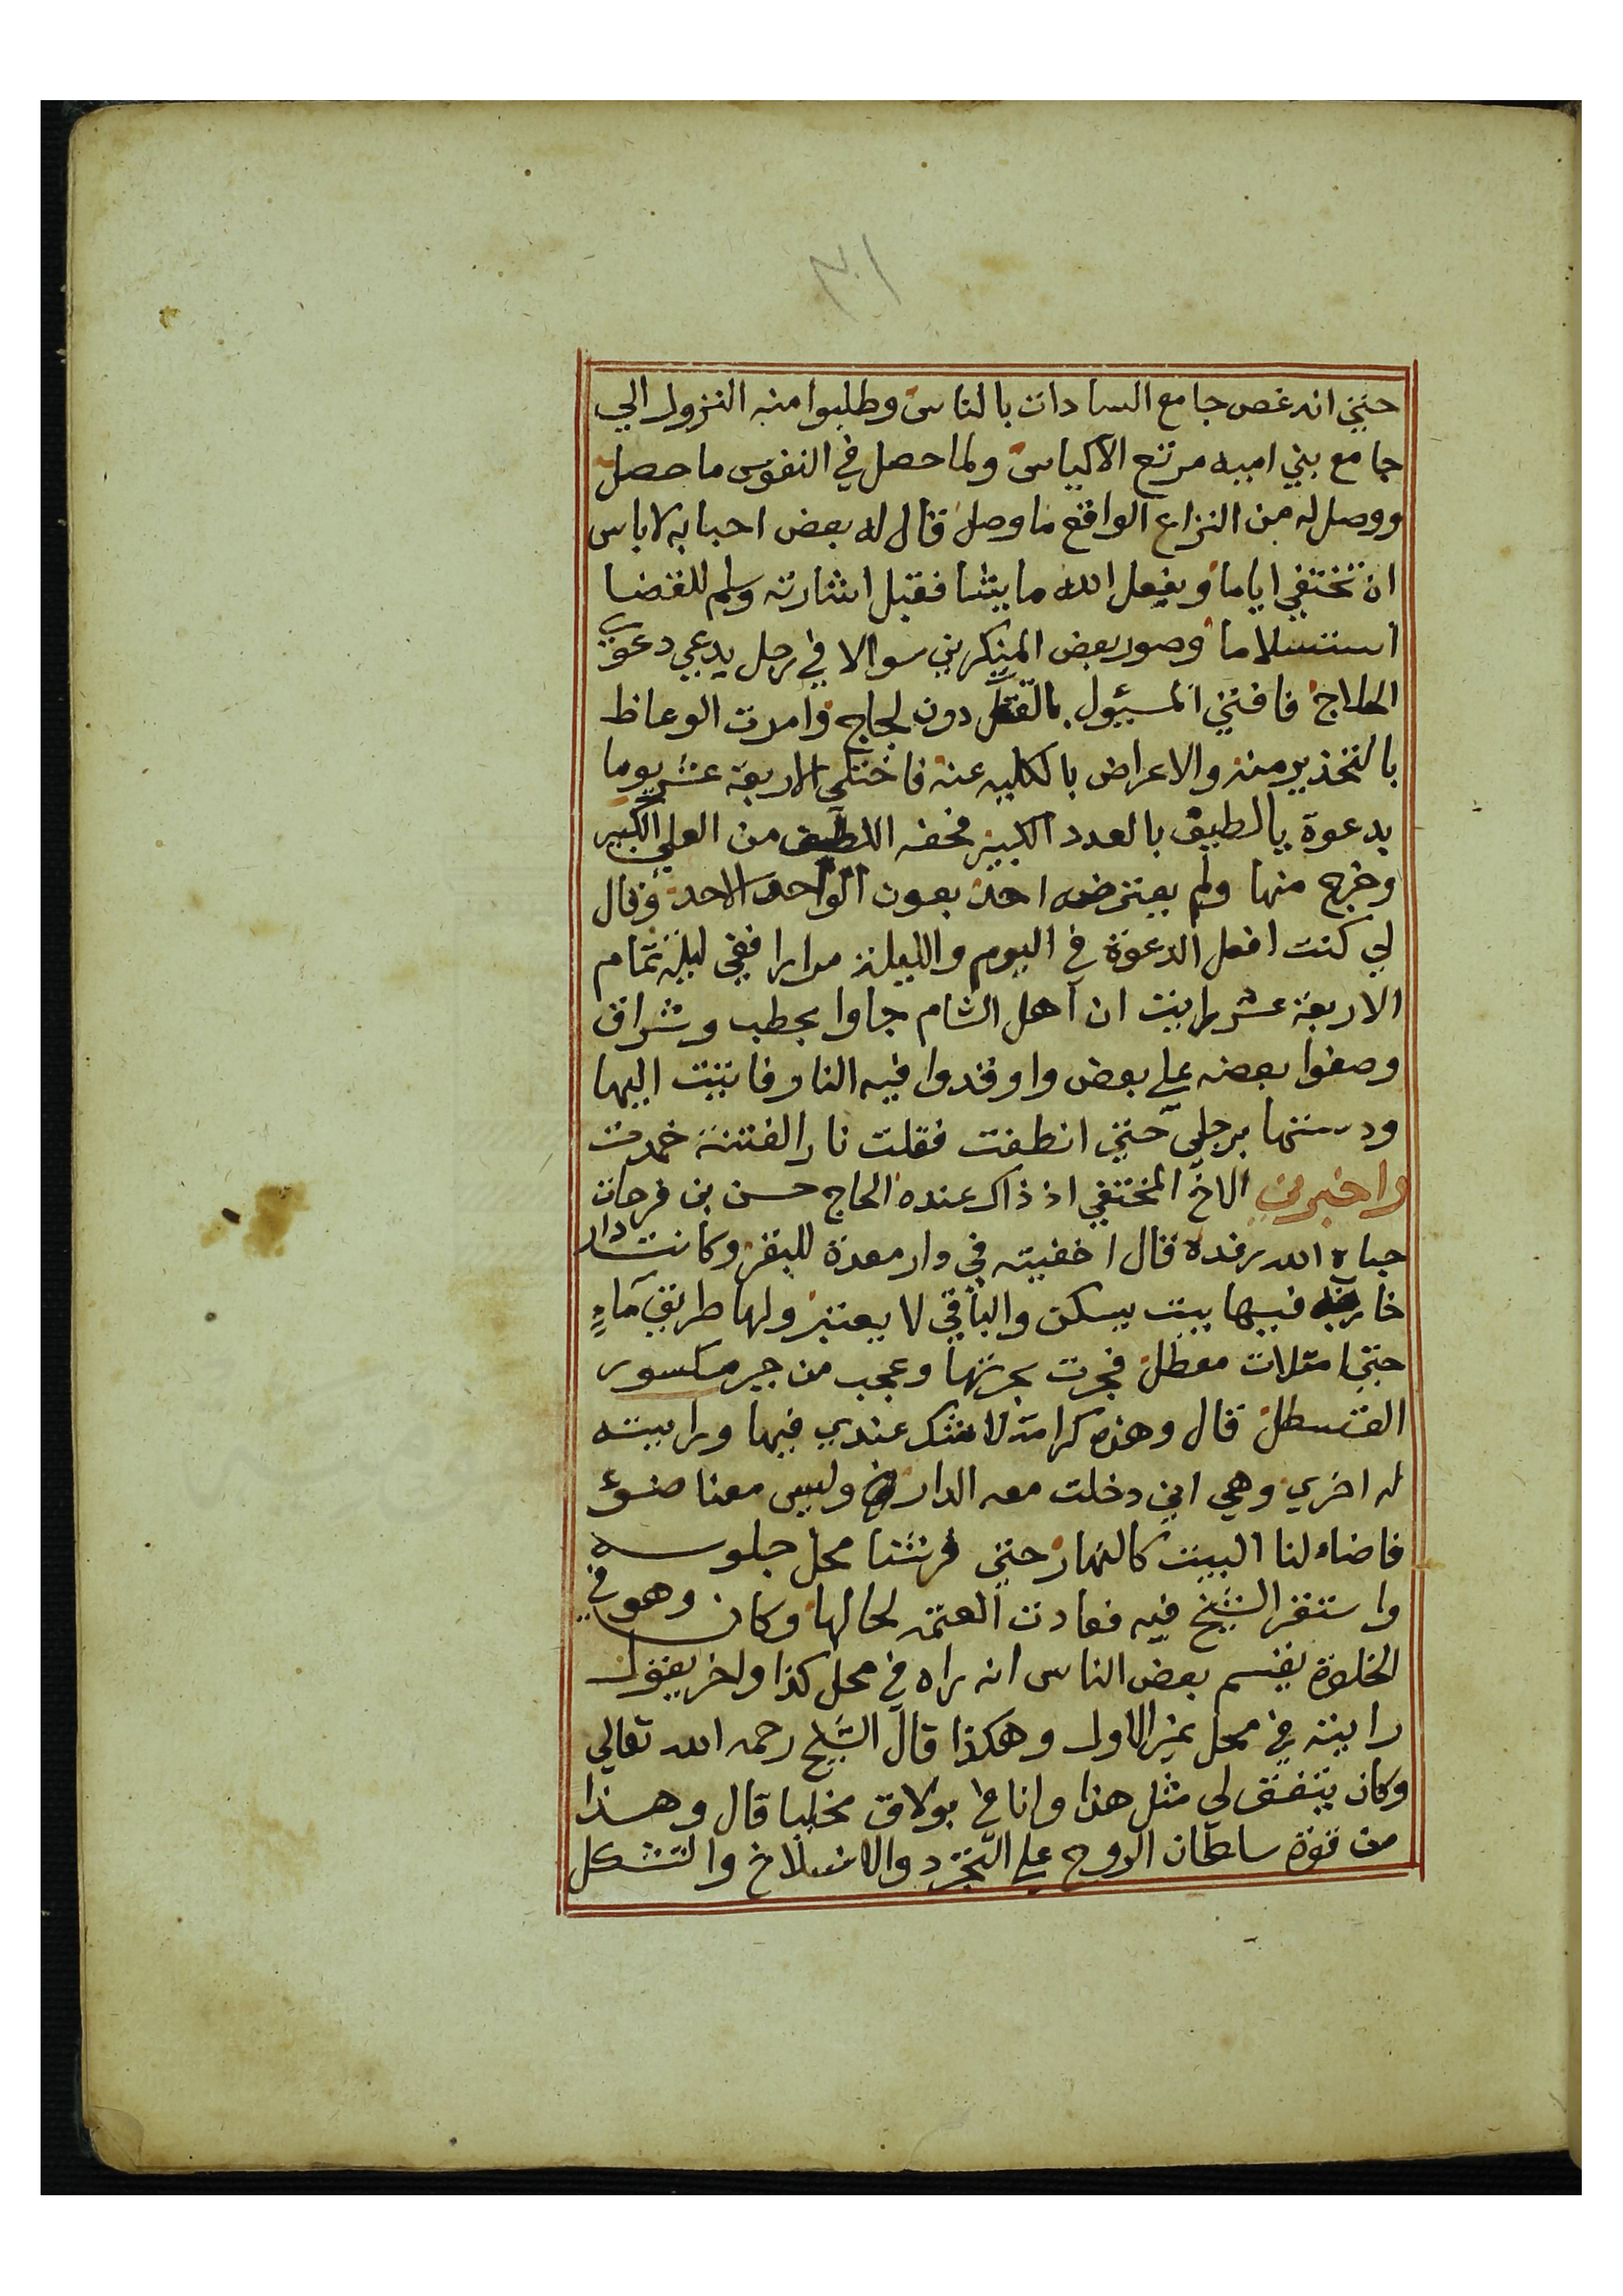 ٣٠١
حتي انه غص جامع السادات بالناس وطلبوا منه النزول الي
جامع بني اميه مرتع الاكياس ولما حصل في النفوس ما حصل
ووصل له من النزاع الواقع ما وصل قال له بعض احبابه لا باس
ان تختفي اياما ويفعل الله ما يشا فقبل اشارته وسلم للقضا
استسلاما وصور بعض المنكرين سوالا في رجل يدعي دعوي
الحلاج فافتي المسيول بالقتل دون لجاج وامرت الوعاظ
بالتحذير منه والاعراض بالكليه عنه فاختلي الاربعة عشر يوما
بدعوة يا لطيف بالعدد الكبير فحفه اللطف من العلي الكبير
وخرج منها ولم يعترضه احد بعون الواحد الاحد وقال
لي كنت افعل الدعوة في اليوم والليلة مرارا ففي ليلة تمام
الاربعة عشر رايت ان اهل الشام جاوا بحطب وشراق
وصفوا بعضه علي بعض واوقدوا فيه النار فاتيت اليها
ودستها برجلي حتي انطفت فقلت نار الفتنة خمدت
واخبرني الاخ المختفي اذ ذاك عنده الحاج حسن بن فرحات
حباه الله رفده قال اخفيته في دار معدة للبقر وكانت دار
خاربة فيها بيت يسكن والباقي لا يعتبر ولها طريق ماء
حتي امتلات معطلة فجرت بجرتها وعجب من جبر مكسور
القسطل قال وهذه كرامة لا شك عندي فيها ورايت
له اخري وهي اني دخلت معه الدار وليس معنا ضوء
فاضاء لنا البيت كالنهار حتي فرشنا محل جلوسه
واستقر الشيخ فيه فعادت العتمة لحالها وكان وهو في
الخلوة يقسم بعض الناس انه راه في محل كذا واخر يقول
رايته في محل غير الاول وهكذا قال الشيخ رحمه الله تعالي
وكان يتفق لي مثل هذا وانا في بولاق مختليا قال وهذا
من قوة سلطان الروح علي التجرد والانسلاخ والتشكل